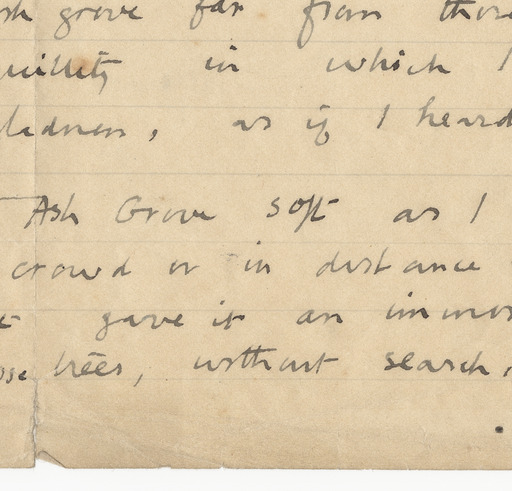 sh grove far from those
uillity in which I
ladness, as if I heard
Ash Grove soft as I
crowd or in distance
gave it an immor
ose trees, without search,